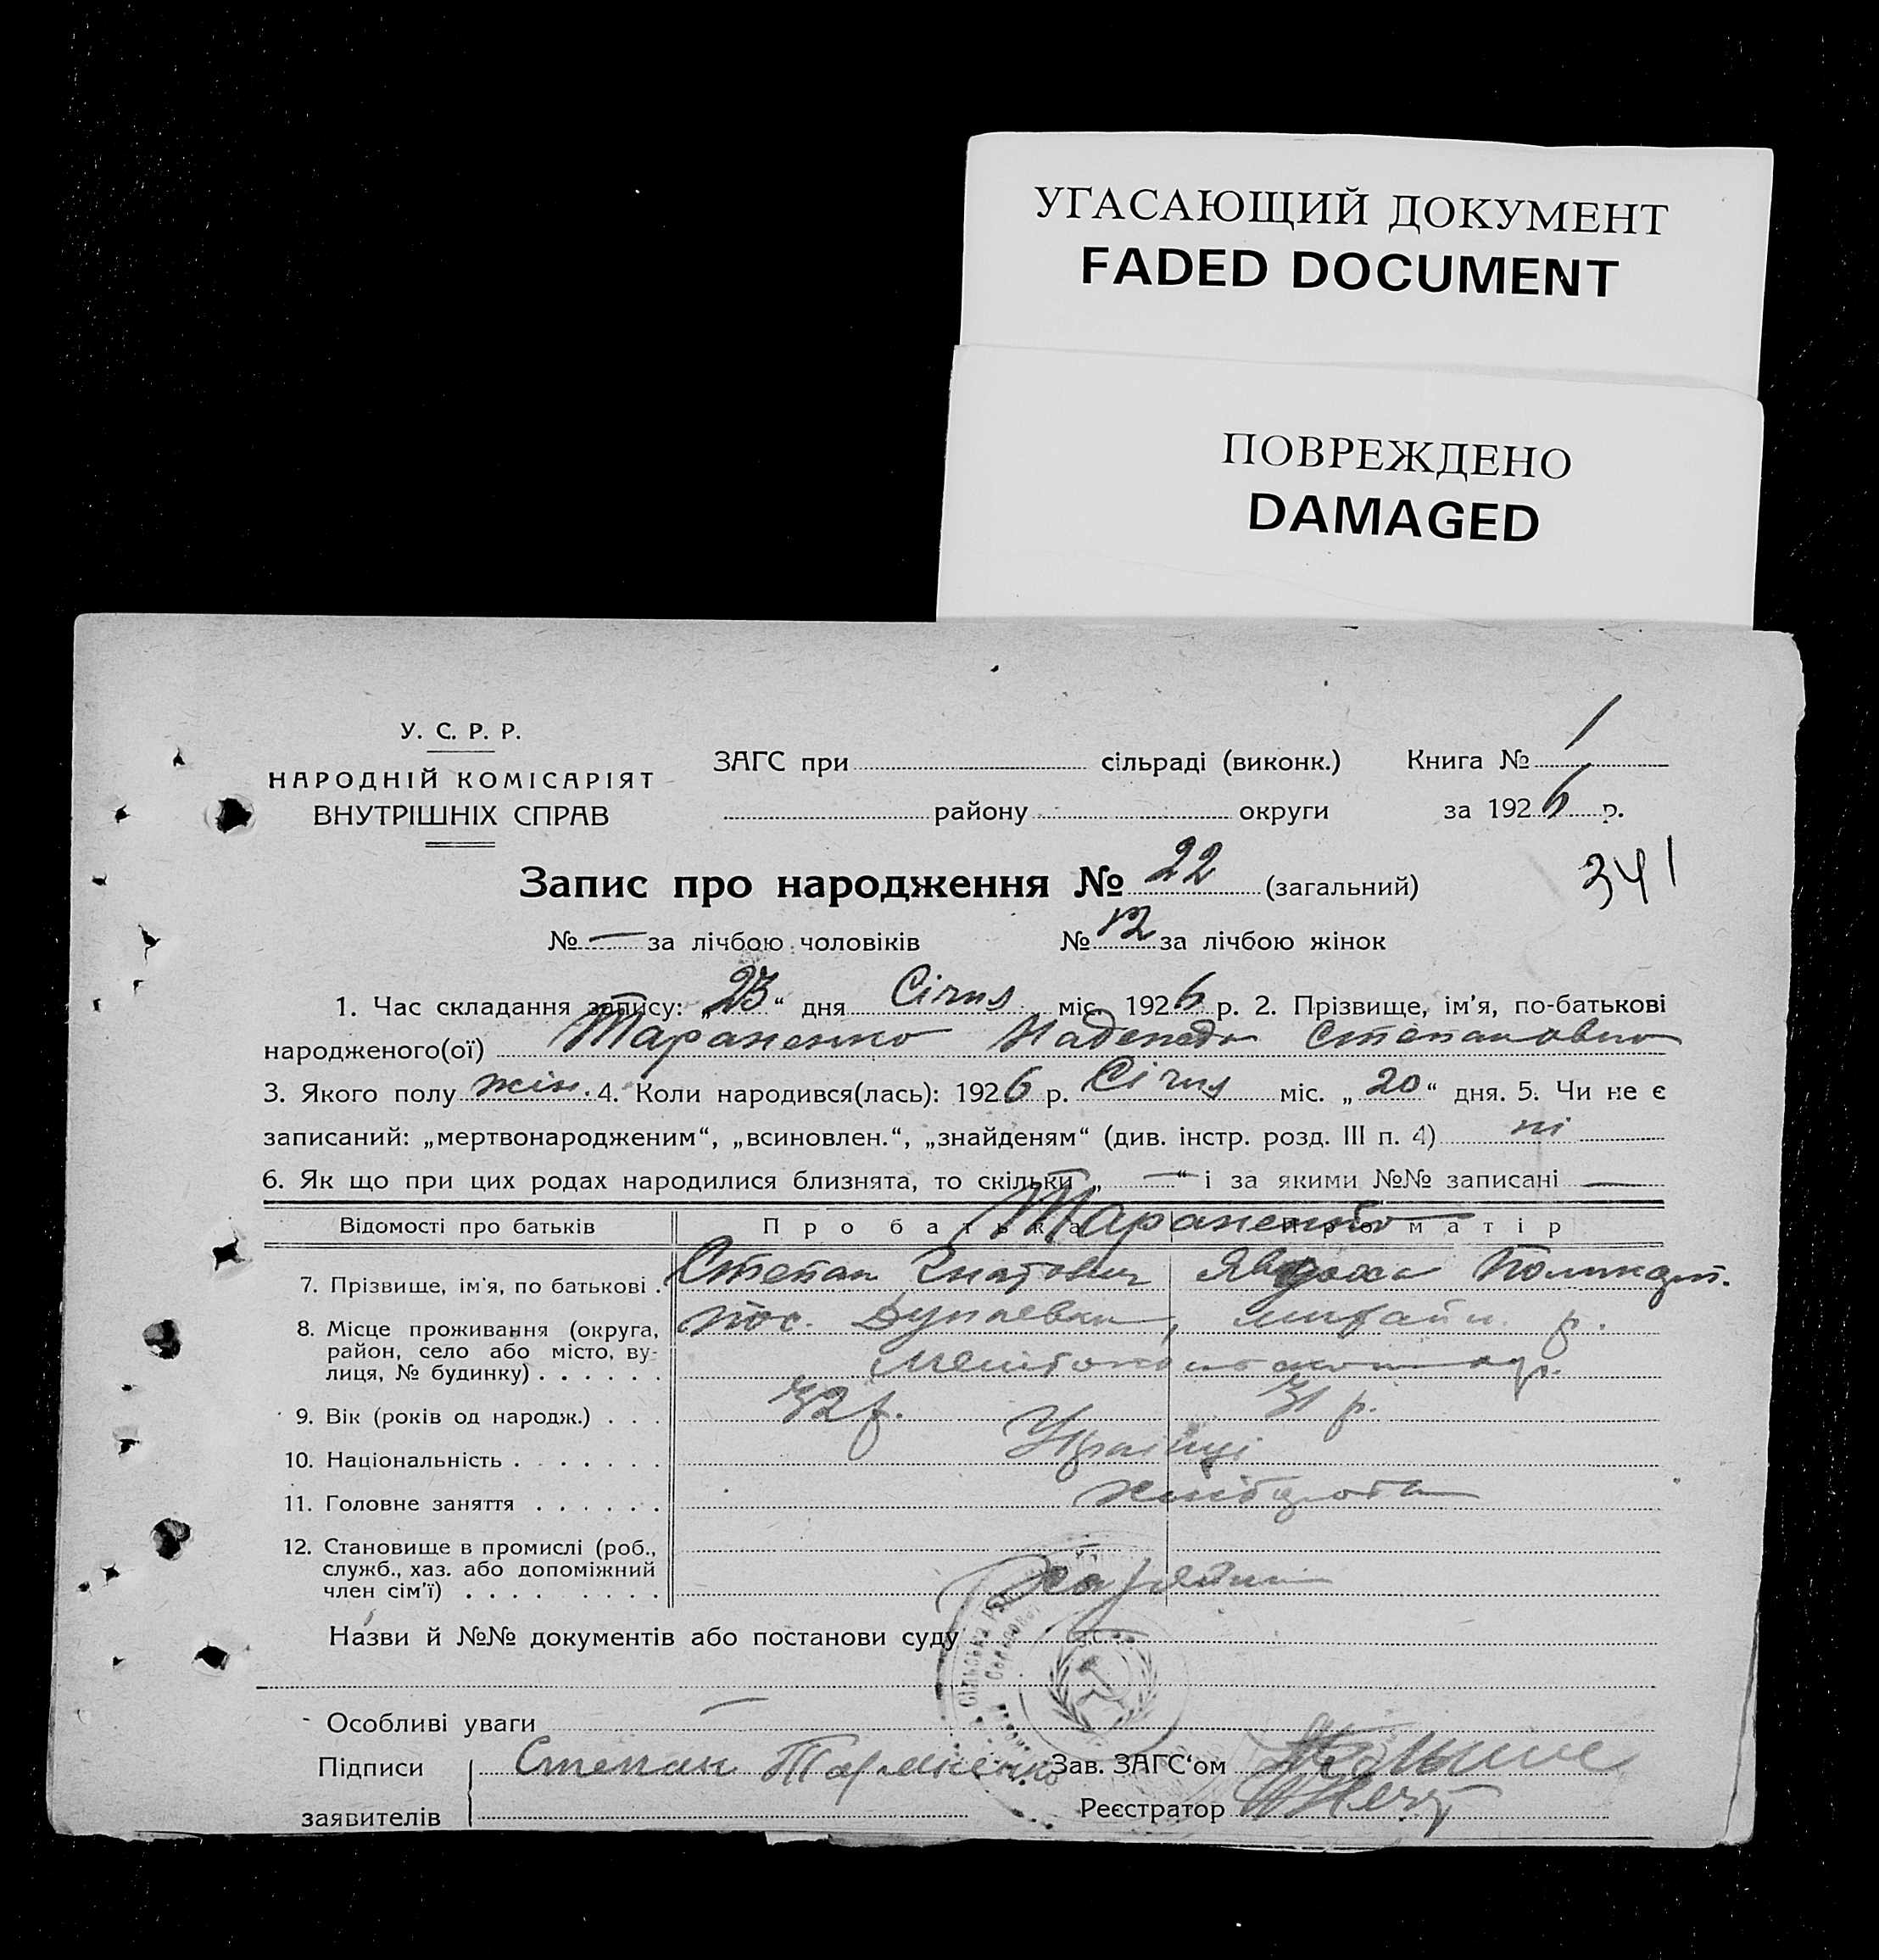 УГАСАЮЩИЙ ДОКУМЕНТ
FADED DOCUMENT
ПОВРЕЖДЕНО
DAMAGED
У. С. Р. Р.
НАРОДНІЙ КОМІСАРІЯТ
ВНУТРІШНІХ СПРАВ
ЗАГС при сільраді (виконк.)
району округи
Книга № 1
за 1926 р.
341
Запис про народження № 22 (загальний)
№ — за лічбою чоловіків № 12 за лічбою жінок
1. Час складання запису: „23“ дня Січня міс. 1926 р. 2. Прізвище, ім'я, по-батькові
народженого(ої) Тараненко Надежда Степановна
3. Якого полу жін. 4. Коли народився(лась): 1926 р. Січня міс. „20“ дня. 5. Чи не є
записаний: „мертвонародженим“, „всиновлен.“, „знайденям“ (див. інстр. розд. III п. 4) ні
6. Як що при цих родах народилися близнята, то скільки „—“ і за якими №№ записані —
Відомості про батьків Про батька Про матір
Тараненко
7. Прізвище, ім'я, по батькові . Степан Гнатович Явдоха
8. Місце проживання (округа, район, село або місто, вулиця, № будинку) . . . . . . пос. Дунаевка, р.
9. Вік (років од народж.) . . . 32 р. 31 р.
10. Національність . . . . . . . Українці
11. Головне заняття . . . . . . хлібороби
12. Становище в промислі (роб., служб., хаз. або допоміжний член сім'ї) . . . . . . . . .
Назви й №№ документів або постанови суду
Особливі уваги —
Підписи заявителів Степан Тараненко
Зав. ЗАГС‘ом
Реєстратор